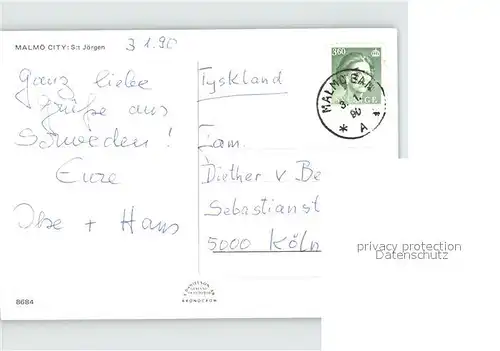 MALMÖ CITY: S:t Jörgen
3 1.90
Ganz liebe
Grüße aus
Schweden!
Eure
Ilse + Hans
Tyskland
Fam.
Diether v Be
Sebastianst
5000 Köln
360
MALMÖ BAN
3. 1.
90
* A 1
privacy protection
Datenschutz
KRONOCROM
8684